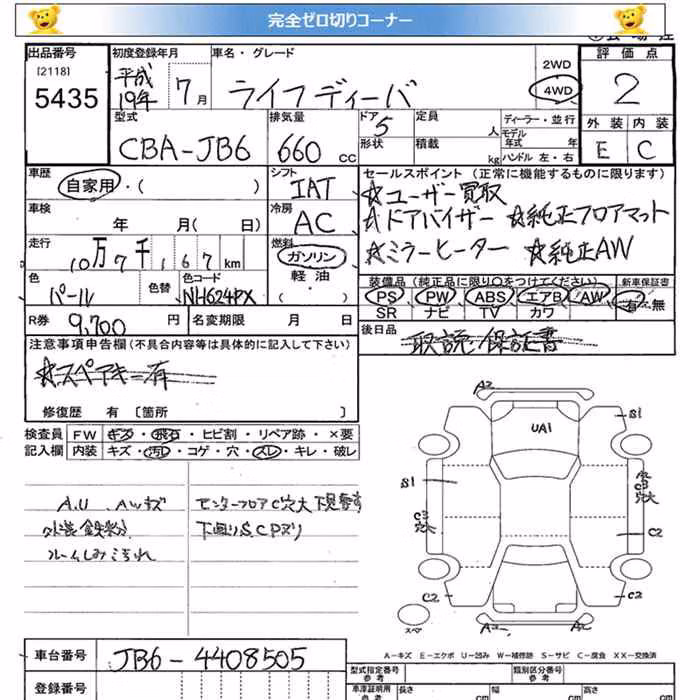 完全ゼロ切りコーナー
出品番号 初度登録年月 車名・グレード 評価点
[2118] 5435 平成19年 7月 ライフ ディーバ 2WD 4WD 2
型式 排気量 ドア 定員 ディーラー・並行 外装 内装
CBA-JB6 660cc 5 人 モデル年式 年 E C
形状 積載 kg ハンドル 左・右
車歴 シフト セールスポイント(正常に機能するものに限ります)
自家用・( ) IAT ☆ユーザー買取
車検 冷房 ☆ドアバイザー ☆純正フロアマット
年 月( 日) AC ☆ミラーヒーター ☆純正AW
走行 燃料
10万7千167km ガソリン・軽油・( )
色 色替 色コード 装備品(純正品に限り○をつけてください) 新車保証書
パール NH624PX PS PW ABS エアB AW 有・無
SR ナビ TV カワ
R券 9,700円 名変期限 月 日 後日品
注意事項申告欄(不具合内容等は具体的に記入して下さい) 取説 保証書
☆スペアキー有
修復歴 有 〔箇所 〕
検査員 FW キズ・飛石・ヒビ割・リペア跡・×要
記入欄 内装 キズ・汚レ・コゲ・穴・スレ・キレ・破レ
A.U A.Wキズ センターフロアC穴大 下見要す
外装鉄粉 下回りS,CPズリ
ルームしみ こすれ
A2
UA1
S1
S1
A2
C3
穴大
C3
穴大
C2
C2
C2
スペア
A2
A2
A-キズ E-エクボ U-凹み W-補修跡 S-サビ C-腐食 XX-交換済
車台番号 JB6-4408505 型式指定番号 参考 類別区分番号 参考
登録番号 車庫証明用 参考 長さ cm 幅 cm 高さ cm